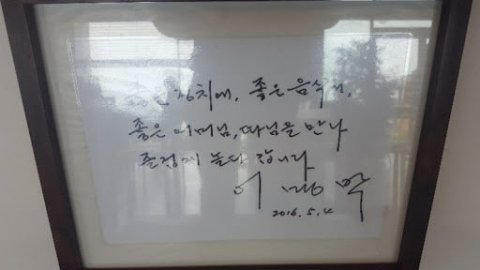 좋은 경치에, 좋은 음식에,
좋은 어머님, 따님을 만나
즐겁게 놀다 갑니다
이
2016. 5. 4